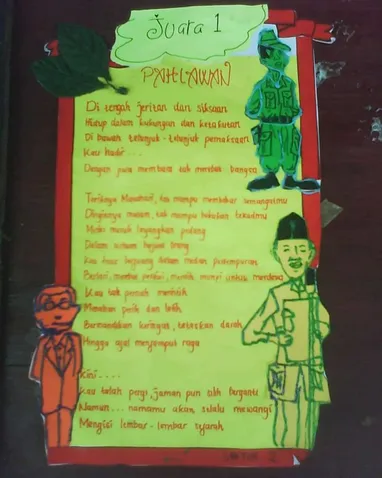 Juara 1
PAHLAWAN
Di tengah jeritan dan siksaan
Hidup dalam kurungan dan ketakutan
Di bawah telunjuk-telunjuk pemaksaan
Kau hadir....
Dengan jiwa membara tak merelai bangsa
Teriknya Matahari, tak mampu membakar semangatmu
Dinginnya malam, tak mampu bekukan tekadmu
Meski musuh layangkan pedang
Dalam
Kau terus berjuang dalam medan pertempuran
Berlari, untuk merdeka
Kau tak pernah merintih
Menahan perih dan letih
Bermandikan keringat, teteskan darah
Hingga ajal menjemput raga
Kini....
Kau telah pergi, jaman pun tlah berganti
Namun... namamu akan selalu mewangi
Mengisi lembar-lembar sejarah